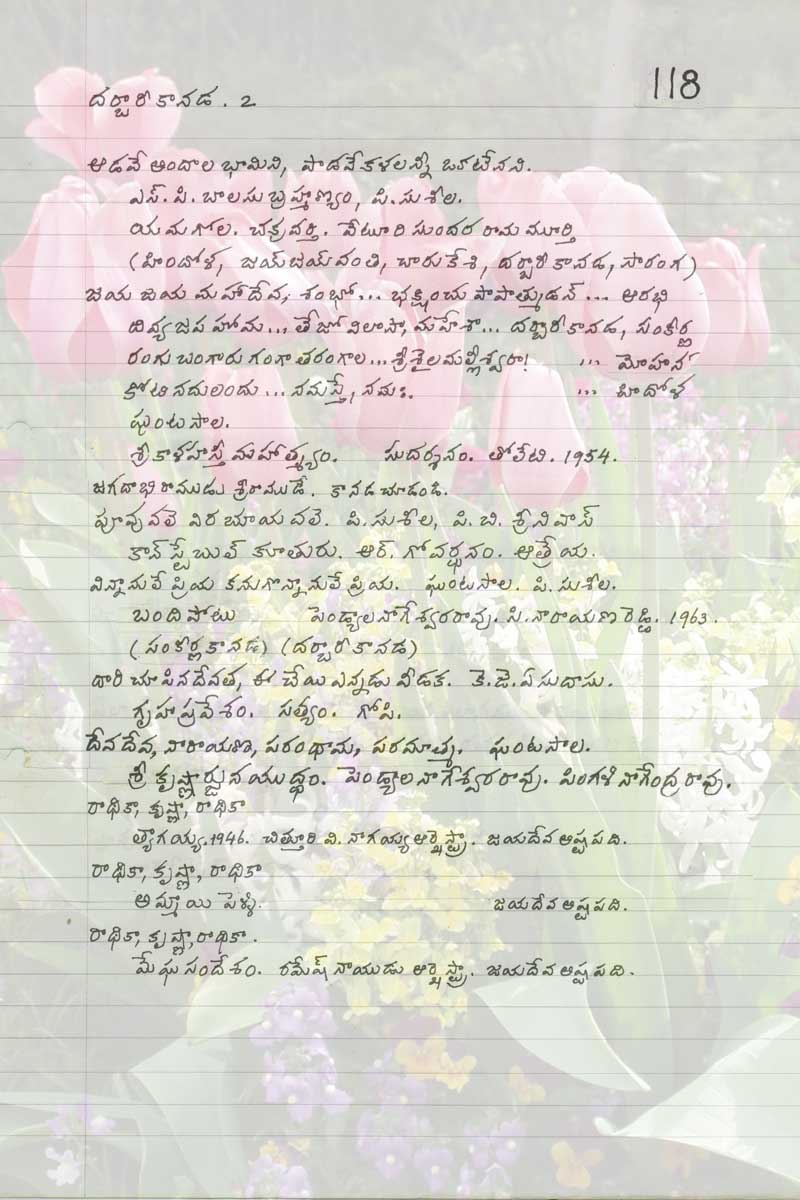 118
దర్బారీ కానడ . 2
ఆడవే అందాల భామిని, పాడవే కళలన్నీ ఒకటేనని.
ఎస్. పి. బాలసుబ్రహ్మణ్యం, పి. సుశీల.
యమగోల. చక్రవర్తి. వేటూరి సుందర రామ మూర్తి
(హిందోళ, జయ్‌జయ్‌వంతి, చారుకేశి, దర్బారీ కానడ, సారంగ)
జయ జయ మహాదేవ, శంభో... భక్షించు పాపాత్ముడన్ ... ఆరభి
దివ్య జప హోమ... తేజోవిలాసా, మహేశా... దర్బారీ కానడ, సంకీర్ణ
రంగు బంగారు గంగాతరంగాల... శ్రీశైలమల్లీశ్వరా! ... మోహన
కోటి నదులందు ... నమస్తే, నమః. ... హిందోళ
ఘంటసాల.
శ్రీ కాళహస్తి మహాత్మ్యం. సుదర్శనం. తోలేటి. 1954.
జగదాభిరాముడు శ్రీరాముడే. కానడ చూడండి.
పూవు వలె విరబూయవలె. పి. సుశీల, పి. బి. శ్రీనివాస్
కాన్ స్టేబుల్ కూతురు. ఆర్. గోవర్ధనం. ఆత్రేయ.
విన్నానులే ప్రియ కనుగొన్నానులే ప్రియ. ఘంటసాల. పి. సుశీల.
బందిపోటు పెండ్యాల నాగేశ్వరరావు. సి. నారాయణ రెడ్డి. 1963.
(సంకీర్ణ కానడ) (దర్బారీ కానడ)
దారి చూపిన దేవత, ఈ చేయి ఎన్నడు వీడక. కె. జె. ఏసుదాసు.
గృహప్రవేశం. సత్యం. గోపి.
దేవదేవ, నారాయణ, పరంధామ, పరమాత్మ. ఘంటసాల.
శ్రీ కృష్ణార్జున యుద్ధం. పెండ్యాల నాగేశ్వరరావు. పింగళి నాగేంద్ర రావు.
రాధికా, కృష్ణా, రాధికా
త్యాగయ్య. 1946. చిత్తూరి వి. నాగయ్య ఆర్కెస్ట్రా. జయదేవ అష్టపది.
రాధికా, కృష్ణా, రాధికా
అమ్మాయి పెళ్ళి. జయదేవ అష్టపది.
రాధికా, కృష్ణా, రాధికా.
మేఘ సందేశం. రమేష్ నాయుడు ఆర్కెస్ట్రా. జయదేవ అష్టపది.